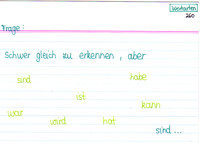 Wortarten
260
Frage:
Schwer gleich zu erkennen, aber
sind habe
ist
kann
war
wird hat
sind ...